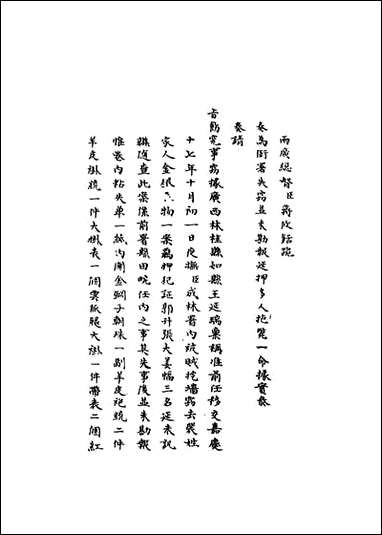 兩廣總督臣蔣攸銛跪
奏為衙署失竊並未勘報延押多人拖斃一命據實恭
奏請
旨飭究事竊據廣西林桂縣知縣王延瑞稟稱准前任移交嘉慶
十七年十月初一日夜撫臣成林署內被賊挖墻竊去裴姓
家人金銀衣物一案羈押犯証郭升張大姜幅三名延未訊
辦隨查此案係前署縣田畹任內之事其失事後並未勘報
惟卷內黏失單一紙內開金圈子朝珠一副羊皮袍統二件
羊皮褂統一件大褂表一個雲狐腿大褂一件帶表二個紅